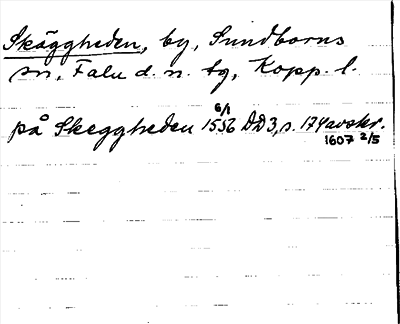 Skäggheden, by, Sundborns
sn, Falu d. n. tg, Kopp. l.
på Skeggheden 6/1 1556 DD3, s. 174 avskr.
1607 2/5